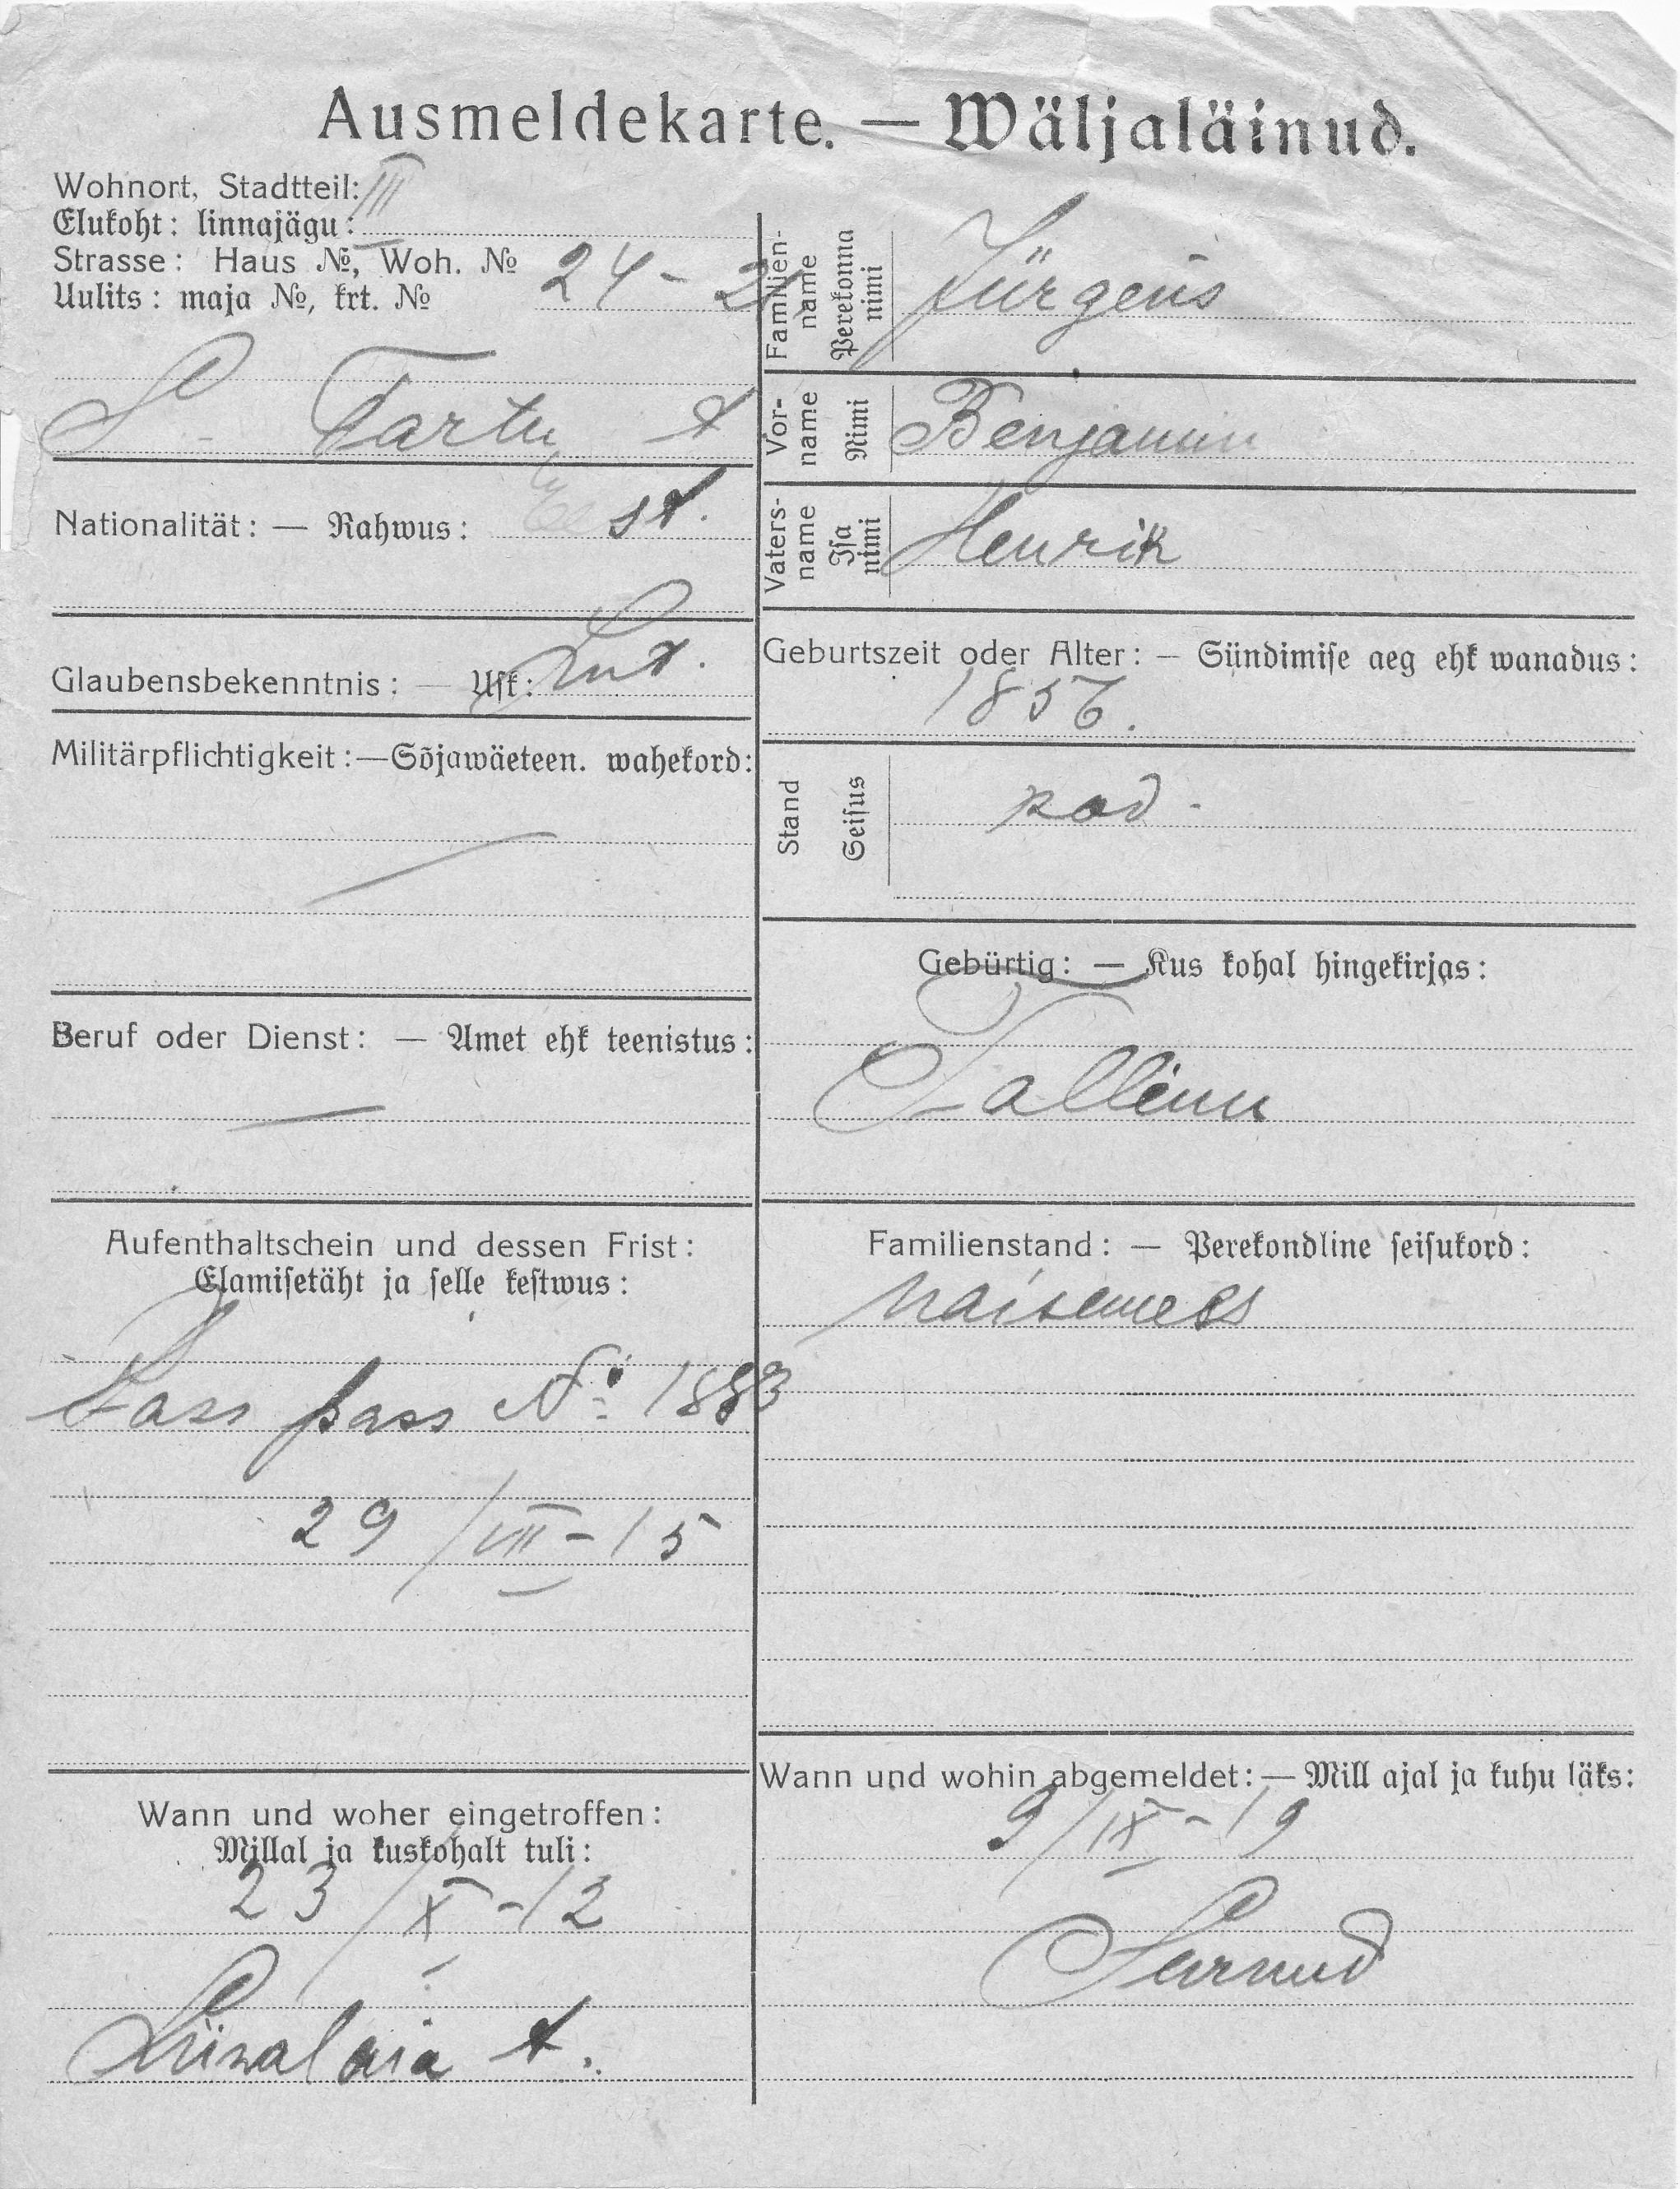 Ausmeldekarte. — Wäljaläinud.
Wohnort, Stadtteil:
Elukoht: linnajägu: III
Strasse: Haus №, Woh. №
Uulits: maja №, krt. № 24 - 21
S. Tartu t
Nationalität: — Rahwus: Eest.
Glaubensbekenntnis: — Usk: Lut.
Militärpflichtigkeit: — Sõjawäeteen. wahekord:
—
Beruf oder Dienst: — Amet ehk teenistus:
—
Aufenthaltschein und dessen Frist:
Elamisetäht ja selle kestwus:
pass № 1883
29/VII - 15
Wann und woher eingetroffen:
Millal ja kuskohalt tuli:
23/X - 12
Liiwalaia t.
Familien-
name
Perekonna
nimi
Jürgens
Vor-
name
Nimi
Benjamin
Vaters-
name
Isa
nimi
Henrik
Geburtszeit oder Alter: — Sündimise aeg ehk wanadus:
1856.
Stand
Seisus
Gebürtig: — Kus kohal hingekirjas:
Tallinn
Familienstand: — Perekondline seisukord:
naisemees
Wann und wohin abgemeldet: — Mill ajal ja kuhu läks:
9/IX - 19
Surnud